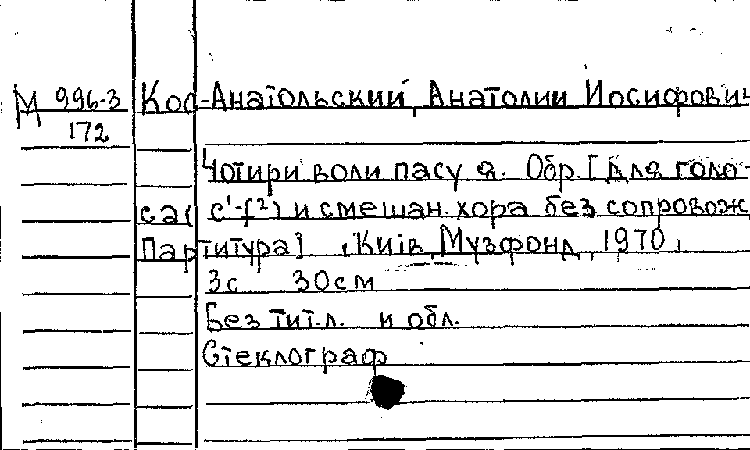 М 996-3 Кос-Анатольский, Анатолий Иосифович
172
Чотири воли пасу я. Обр. [для голо-
са( c¹-f²) и смешан. хора без сопровож.
Партитура]. Київ, Музфонд, 1970.
3с 30см
Без тит.л. и обл.
Стеклограф